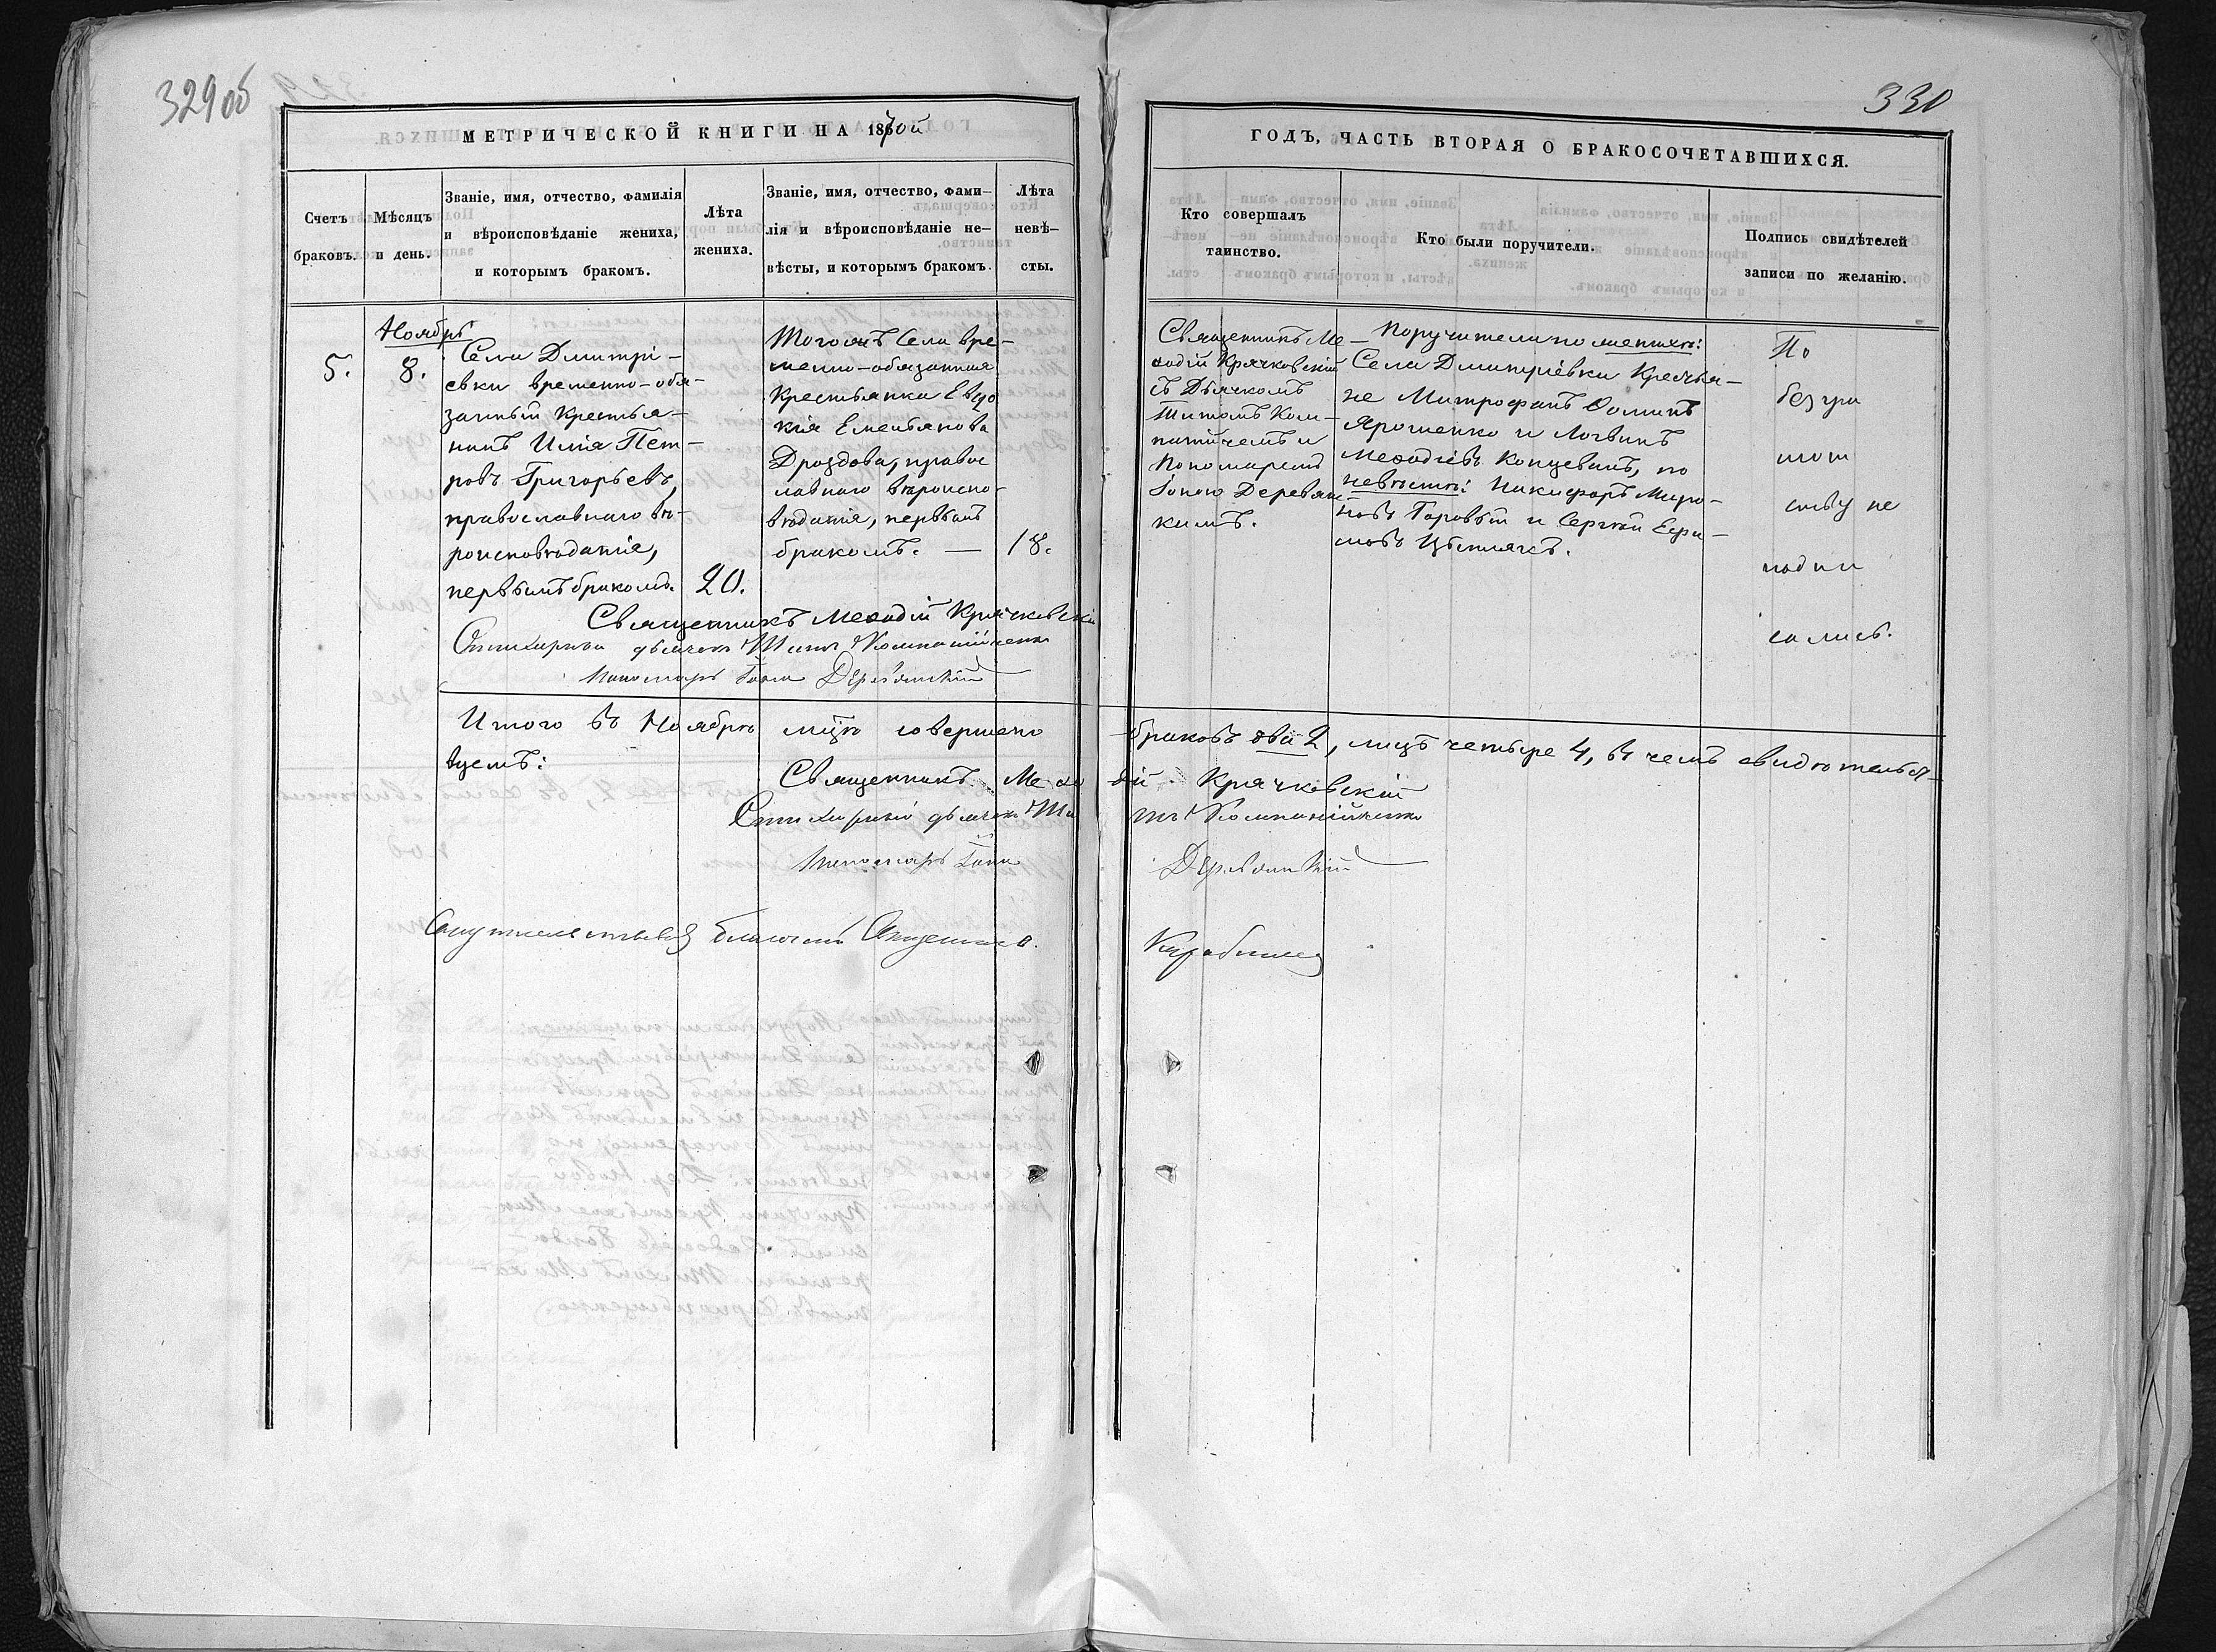 329об
МЕТРИЧЕСКОЙ КНИГИ НА 1870й
Счетъ браковъ.
Мѣсяцъ и день.
Званіе, имя, отчество, фамилія
и вѣроисповѣданіе жениха,
и которымъ бракомъ.
Лѣта жениха.
Званіе, имя, отчество, фами-
лія и вѣроисповѣданіе не-
вѣсты, и которымъ бракомъ.
Лѣта невѣ-
сты.
5.
Ноябрь
8.
Села Дмитрі-
евки временно-обя-
занный крестья-
нинъ Илія Пет-
ровъ Григорьевъ,
православнаго вѣ-
роисповѣданія,
первымъ бракомъ.
20.
Тогожъ Села вре-
менно-обязанная
крестьянка Евдо
кія Емельянова
Дроздова, право
славнаго вѣроиспо-
вѣданія, первымъ
бракомъ. —
18.
Священникъ Меѳодій Крячковскій
Стихарный дьячекъ Титъ Компанійченко
Пономарь Іоаннъ
Итого въ Ноябрѣ мцѣ совершено
вцемъ:
Священникъ Меѳо
Стихарный дьячекъ Ти
Пономарь
благочинный
330
ГОДЪ, ЧАСТЬ ВТОРАЯ О БРАКОСОЧЕТАВШИХСЯ.
Кто совершалъ
таинство.
Кто были поручители.
Подпись свидѣтелей
записи по желанію.
Священникъ Ме-
ѳодій Крячковскій
съ Дьячкомъ
Титомъ Ком-
панійчемъ и
Пономаремъ
Іоною Деревян-
кимъ.
Поручители по женихѣ:
Села Дмитріевки Крестья-
не Митрофанъ Ѳоминъ
Ярошенко и Логвинъ
Меѳодіевъ Концевичъ, по
невѣстѣ: Никифоръ Миро-
новъ Горовый и Сергѣй Ефи-
мовъ
По
безгра
мот
ству не
подпи
сались.
браковъ два 2, лицъ четыре 4, въ чемъ свидѣтельст-
дій Крячковскій
тъ Компанійченко